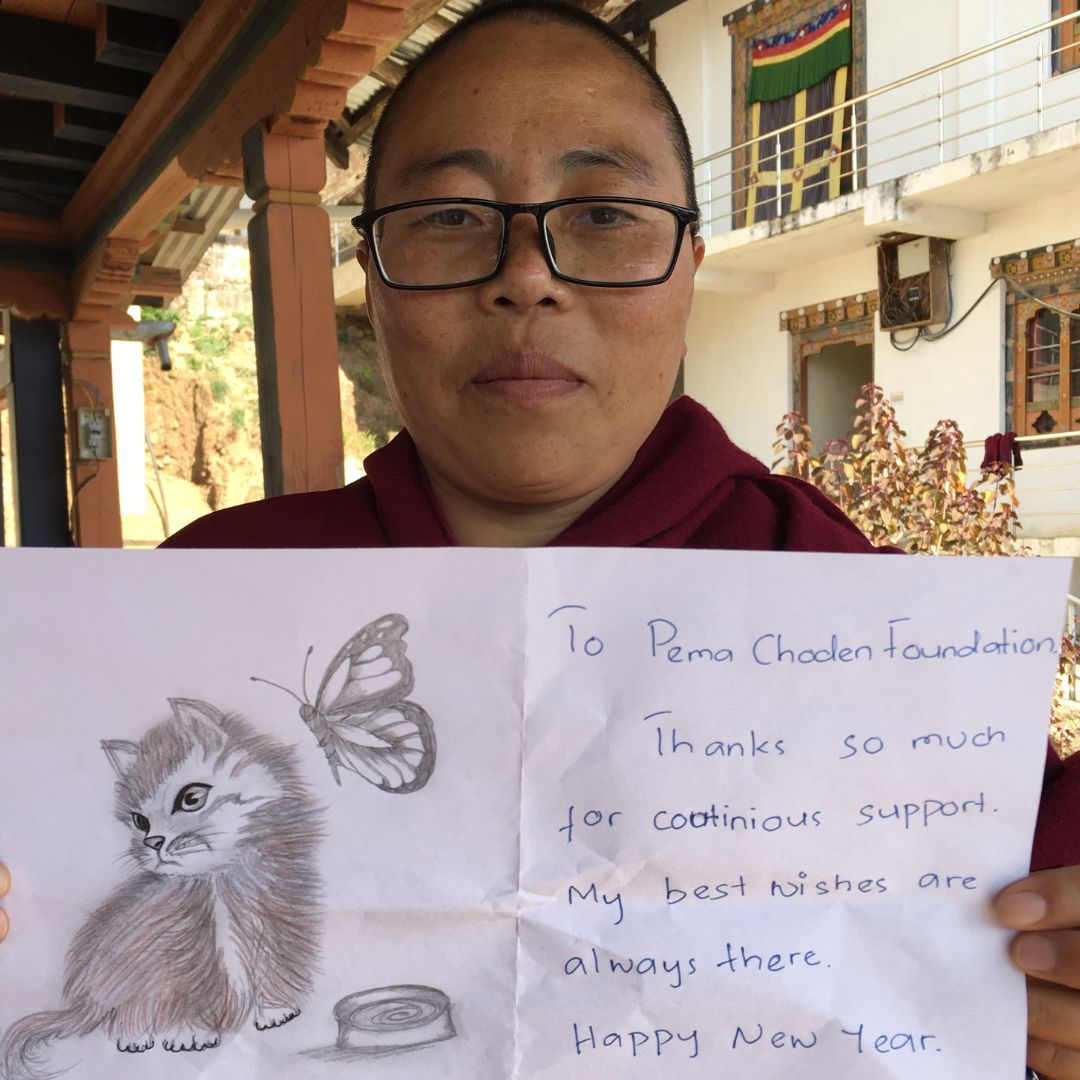 To Pema Choden Foundation.
Thanks so much
for cootinious support.
My best wishes are
always there.
Happy New Year.